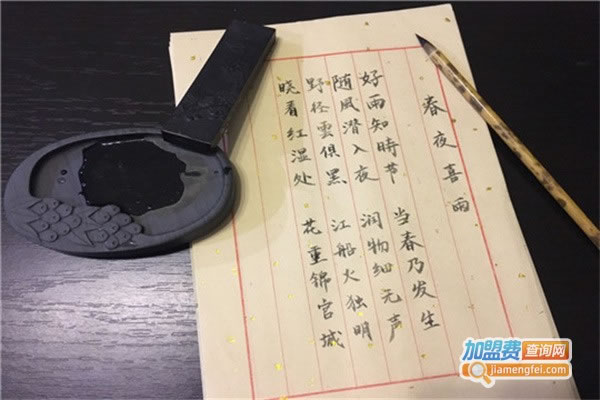 春夜喜雨
好雨知時节 当春乃发生
随风潜入夜 润物细无声
野径雲俱黑 江船火独明
晓看红湿处 花重锦宫城
加盟费查询网
jiamengfei.com